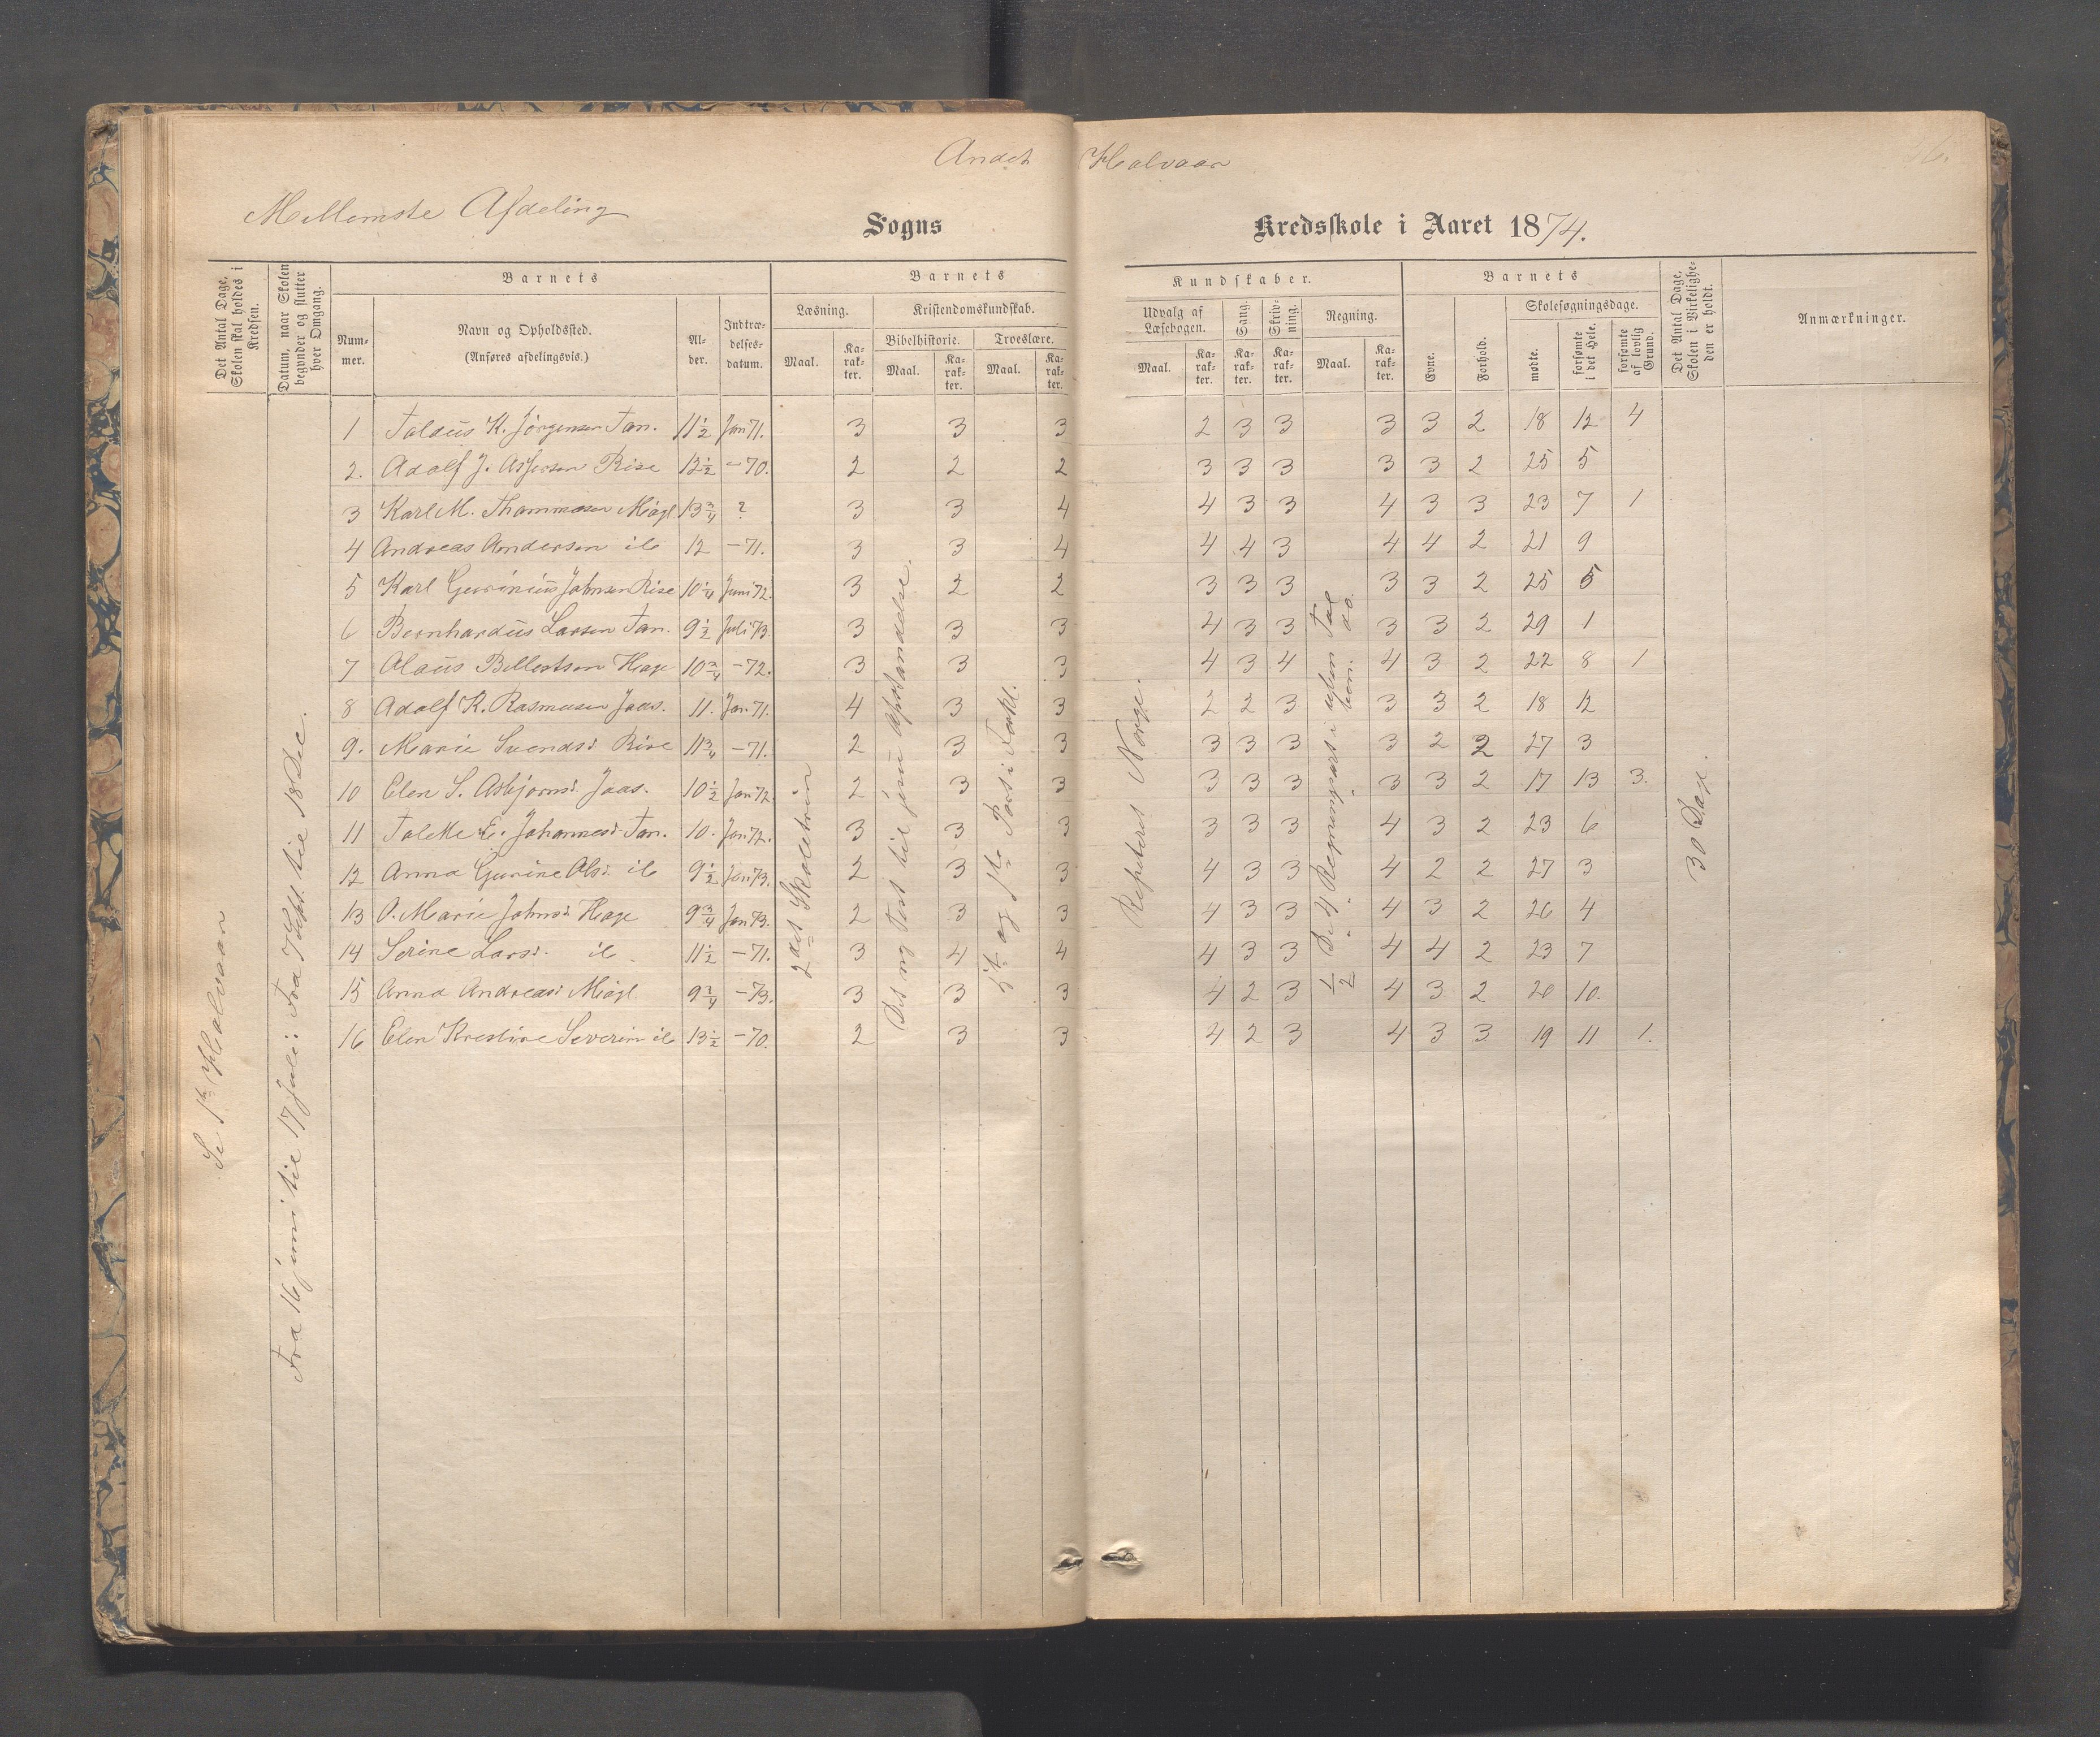 Andet Halvaar
Mellemste Afdeling
Sogns Kredsskole i Aaret 1874.
Det Antal Dage, Skolen skal holdes i Kredsen.
Datum, naar Skolen begynder og slutter hver Omgang.
Barnets
Nummer.
Navn og Opholdssted.
(Anføres afdelingsvis.)
Alder.
Indtrædelsesdatum.
Barnets Kundskaber.
Læsning.
Maal. Karakter.
Kristendomskundskab.
Bibelhistorie. Troeslære.
Maal. Karakter. Maal. Karakter.
Udvalg af Læsebogen.
Maal. Karakter.
Sang. Karakter.
Skrivning. Karakter.
Regning.
Maal. Karakter.
Barnets
Evne. Forhold.
Skolesøgningsdage.
mødte. forsømte i det Hele. forsømte af lovlig Grund.
Det Antal Dage, Skolen i Virkeligheden er holdt.
Anmærkninger.
Se 1ste Halvaar
Fra 16 juni til 17 juli: Fra 7 Sept. til 18 Dec.
2det Skoletrin
Det ny Test til jesu Opstandelse.
1ste og Part i Forkl.
Repeteret Norge.
De 4 Regningsart i uben Tal
30 Dage.
1 Taldus K. Jørgensen Tan. 11 1/2 Jan 71. 3 3 3 2 3 3 3 3 2 18 12 4
2. Adolf J. Asgersen Rise 12 1/2 - 70. 2 2 2 3 3 3 3 3 2 25 5
3 Karl M. Thommasen Miøgl 13 3/4 ? 3 3 4 4 3 3 4 3 3 23 7 1
4 Andreas Andersen ib 12 - 71. 3 3 4 4 4 3 4 4 2 21 9
5 Karl Gurinius Johnsen Rise 10 1/4 Juni 72. 3 2 2 3 3 3 3 3 2 25 5
6 Bernhardus Larsen Tan. 9 1/2 Juli 73. 3 3 3 4 3 3 3 3 2 29 1
7 Olaus Bellestsen Hage 10 3/4 - 72. 3 3 3 4 3 4 4 3 2 22 8 1
8 Adolf K. Rasmussen Jaas. 11. Jan. 71. 4 3 3 2 2 3 3 3 2 18 12
9. Marie Svends. Rise 11 3/4 - 71. 2 3 3 3 3 3 3 2 2 27 3
10 Elen S. Asbjørns. Jaas. 10 1/2 Jan 72. 2 3 3 3 3 3 3 3 2 17 13 3.
11 Talette E. Johannesd. Tan. 10. Jan 72. 3 3 3 3 3 3 4 3 2 23 6
12 Anna Gurine Olsd. ib 9 1/2 Jan 73. 2 3 3 4 3 3 4 2 2 27 3
13 O. Marie Johnsd. Hage 9 3/4 Jan 73. 2 3 3 4 3 3 4 3 2 26 4
14 Serine Larsd. ib 11 1/2 - 71. 3 4 4 4 3 3 4 4 2 23 7
15 Anna Andreasd. Miøgl. 9 3/4 - 73. 3 3 3 4 2 3 4 3 2 20 10.
16 Elen Krestine Severin ib 13 1/2 - 70. 2 3 3 4 2 3 4 3 3 19 11 1.